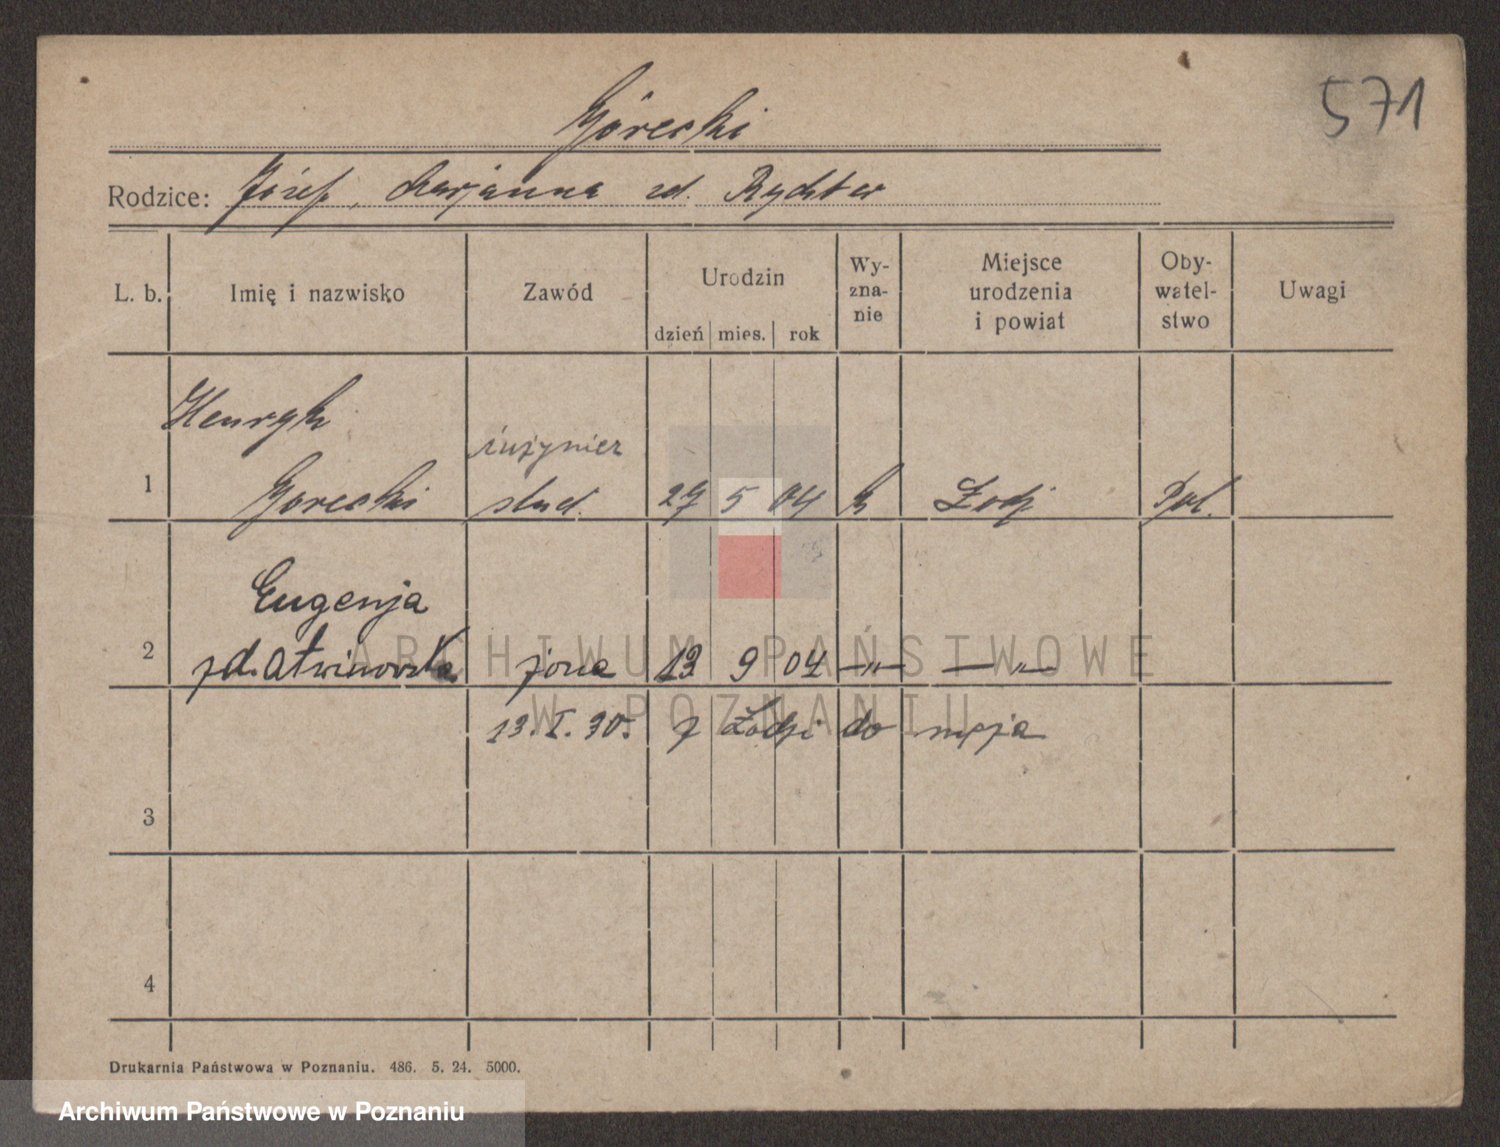 571
Górecki
Rodzice: Józef, Marjanna zd. Rychter
L. b. Imię i nazwisko Zawód Urodzin dzień mies. rok Wy-zna-nie Miejsce urodzenia i powiat Oby-watel-stwo Uwagi
Henryk
inżynier
1 Gorecki stud. 27 5 04 k Łodz Pol.
Eugenja
2 zd. Atwinowska żona 13 9 04 —„— —„—
13. I. 30. z Łodzi do męża
3
4
Drukarnia Państwowa w Poznaniu. 486. 5. 24. 5000.
ARCHIWUM PAŃSTWOWE
W POZNANIU
Archiwum Państwowe w Poznaniu